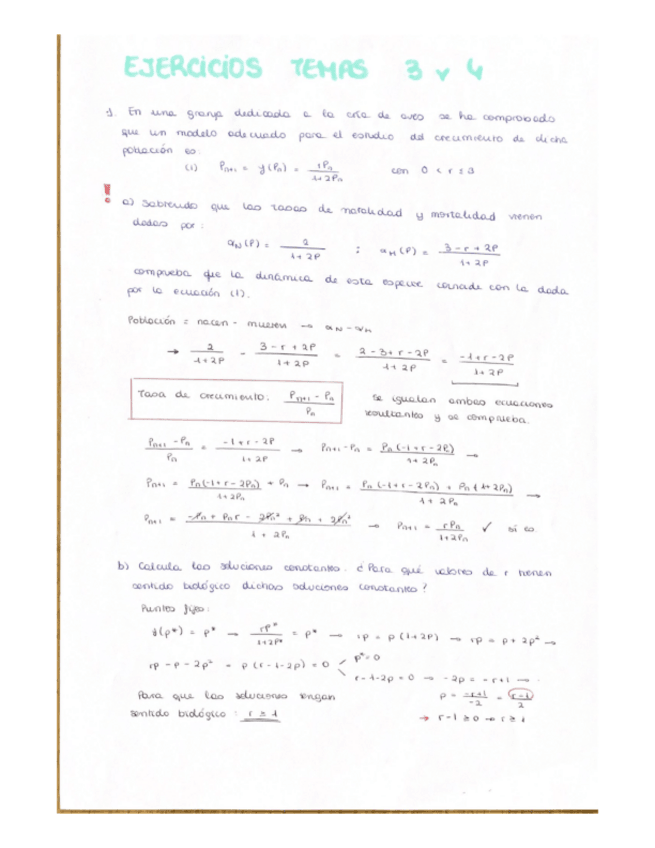 EJERCICIOS TEMAS 3 y 4
1. En una granja dedicada a la cría de aves se ha comprobado
que un modelo adecuado para el estudio del crecimiento de dicha
población es:
(1) Pn+1 = y(Pn) = rPn / 1+2Pn con 0 < r ≤ 3
a) Sabiendo que las tasas de natalidad y mortalidad vienen
dadas por:
aN(P) = 2 / 1+2P ; aM(P) = 3-r+2P / 1+2P
comprueba que la dinámica de esta especie coincide con la dada
por la ecuación (1).
Población = nacen - mueren → aN - aM
→ 2 / 1+2P - 3-r+2P / 1+2P = 2-3+r-2P / 1+2P = -1+r-2P / 1+2P
Tasa de crecimiento. Pn+1 - Pn / Pn
se igualan ambas ecuaciones
resultantes y se comprueba.
Pn+1 - Pn / Pn = -1+r-2P / 1+2P → Pn+1 - Pn = Pn(-1+r-2Pn) / 1+2Pn →
Pn+1 = Pn(-1+r-2Pn) / 1+2Pn + Pn → Pn+1 = Pn(-1+r-2Pn) + Pn(1+2Pn) / 1+2Pn →
Pn+1 = -Pn + Pnr - 2Pn² + Pn + 2Pn² / 1+2Pn → Pn+1 = rPn / 1+2Pn ✓ si es
b) Calcula las soluciones constantes. ¿Para qué valores de r tienen
sentido biológico dichas soluciones constantes?
Puntos fijos:
y(p*) = p* → rp* / 1+2p* = p* → rp = p(1+2p) → rp = p+2p² →
rp - p - 2p² = p(r-1-2p) = 0 p* = 0
r-1-2p = 0 → -2p = -r+1 →
p = -r+1 / -2 = r-1 / 2
Para que las soluciones tengan
sentido biológico: r ≥ 1
→ r-1 ≥ 0 → r ≥ 1